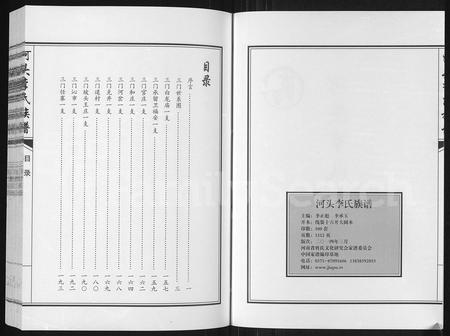 目录
序言 一
三门世系图 三
三门白龙庙一支
三门承留卫福安一支 五九
三门官庄一支 六二
三门和庄一支 六四
三门河岔一支 六六
三门克井一支 六八
三门道村一支 八〇
三门坡头王庄一支 九〇
三门沁市一支
三门任寨一支 九三
河头李氏族谱
目录
河头李氏族谱
主编：李正超 李承玉
开本：线装十六开大圆本
印数：300 套
页数：1312 页
版次：二〇一四年三月
河南省姓氏文化研究会家谱委员会
中国家谱编印基地
电话：0371-67091606 13838592893
网址：www.jiapu.tv
FamilySearch